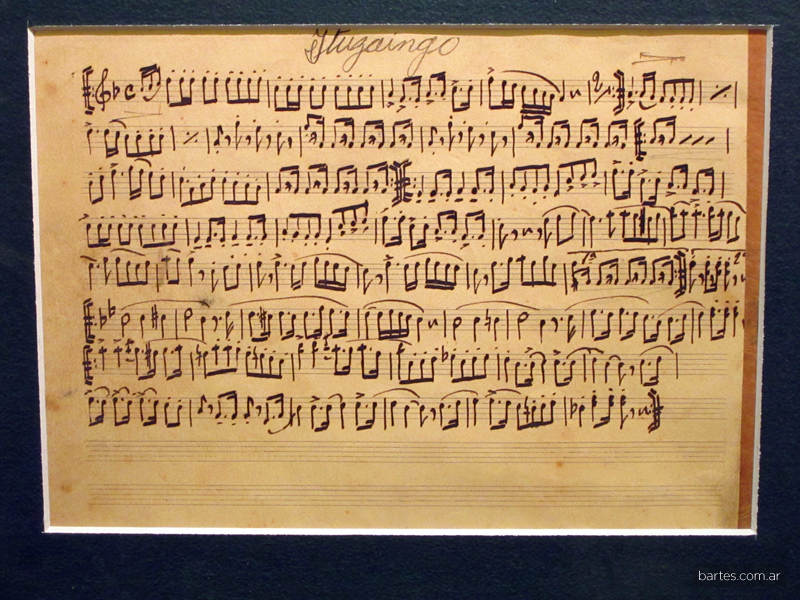 Ituzaingo
1ª
2ª
bartes.com.ar